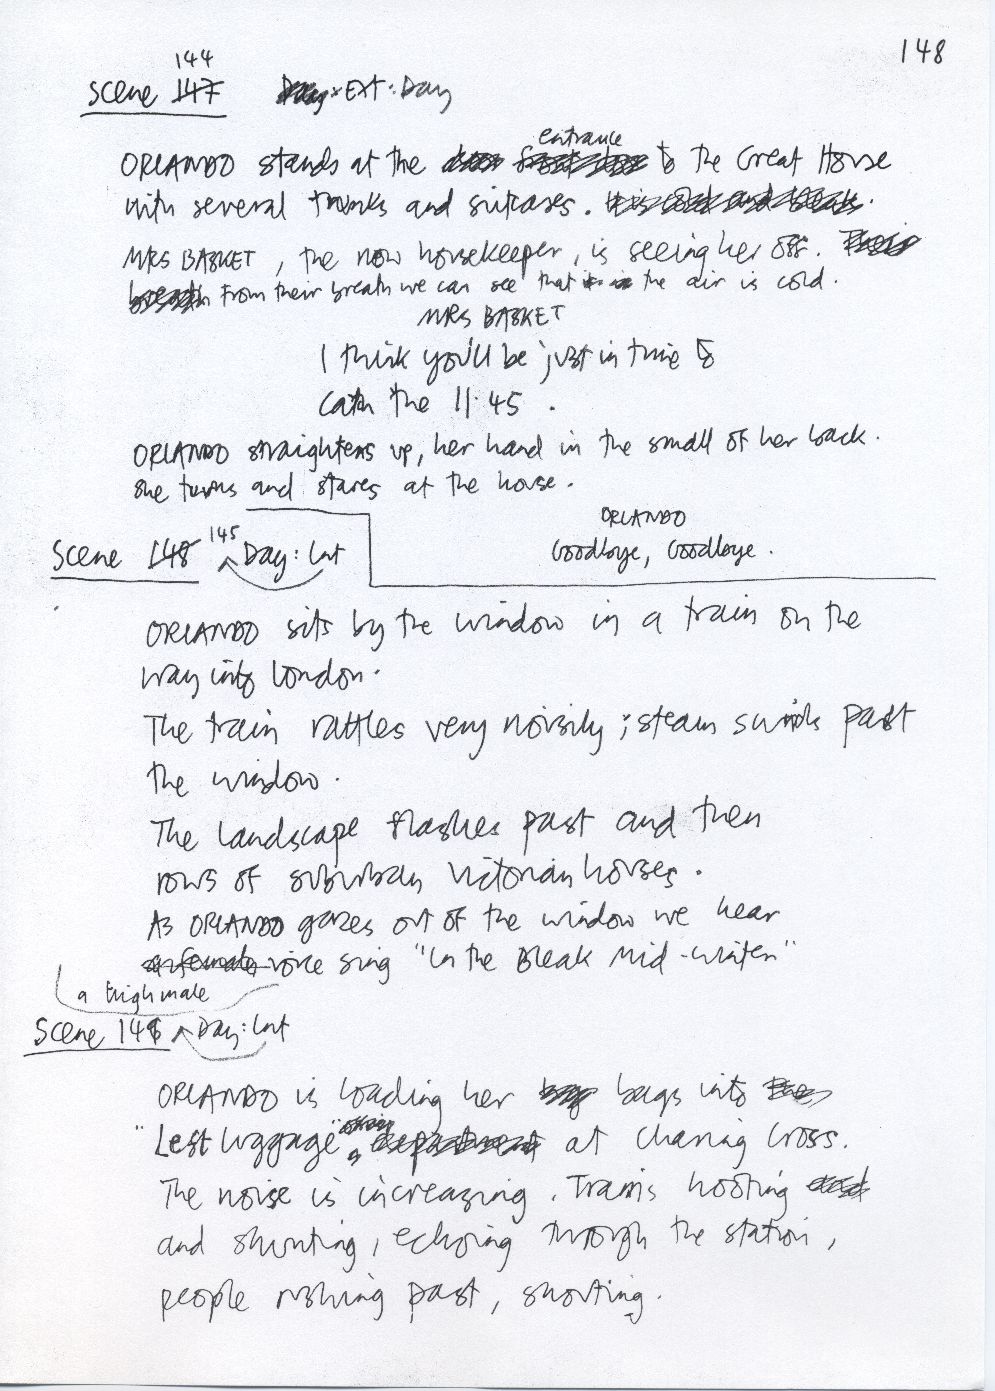 148
144
Scene 147 Day: EXT: Day
entrance
ORLANDO stands at the door front door to the Great House
with several trunks and suitcases. It is cold and bleak.
MRS BASKET, the now housekeeper, is seeing her off. Their
breath From their breath we can see that it is the air is cold.
MRS BASKET
I think you'll be just in time to
catch the 11.45.
ORLANDO straightens up, her hand in the small of her back.
She turns and stares at the house.
ORLANDO
Goodbye, Goodbye.
Scene 148 145 Day: Int
ORLANDO sits by the window in a train on the
way into London.
The train rattles very noisily; steam swirls past
the window.
The landscape flashes past and then
rows of suburban Victorian houses.
As ORLANDO gazes out of the window we hear
a female voice sing "In the Bleak Mid-Winter"
a high male
Scene 146 Day: Int
ORLANDO is loading her bags into
"Left Luggage" department at Charing Cross.
The noise is increasing. Trains hooting
and shunting, echoing through the station,
people rushing past, shouting.